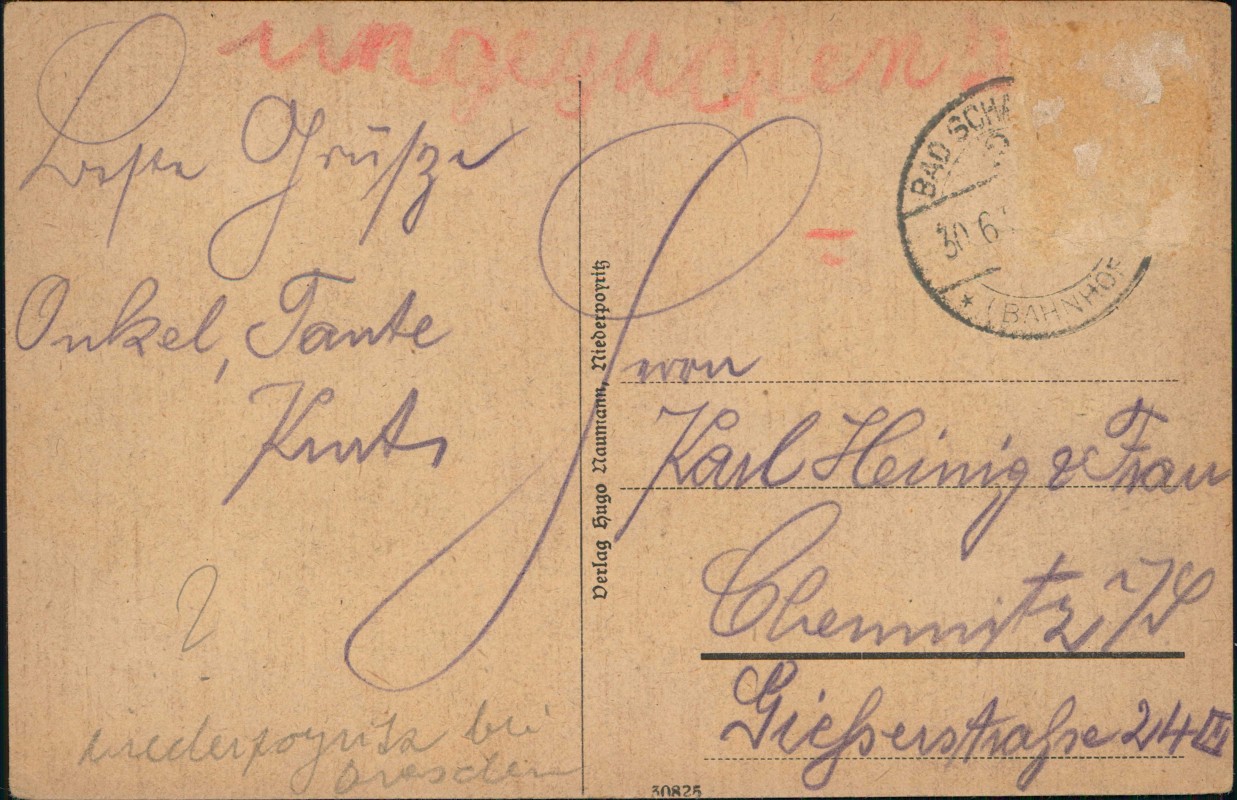 Beste Grüsze
Onkel, Tante
Kurt,
Niederpoyritz bei
Dresden
Verlag Hugo Naumann, Niederpoyritz
30825
BAD SCHA
30.6.
* (BAHNHOF
Herrn
Karl Heinig & Frau
Chemnitz i/S
Gießerstraße 24 III